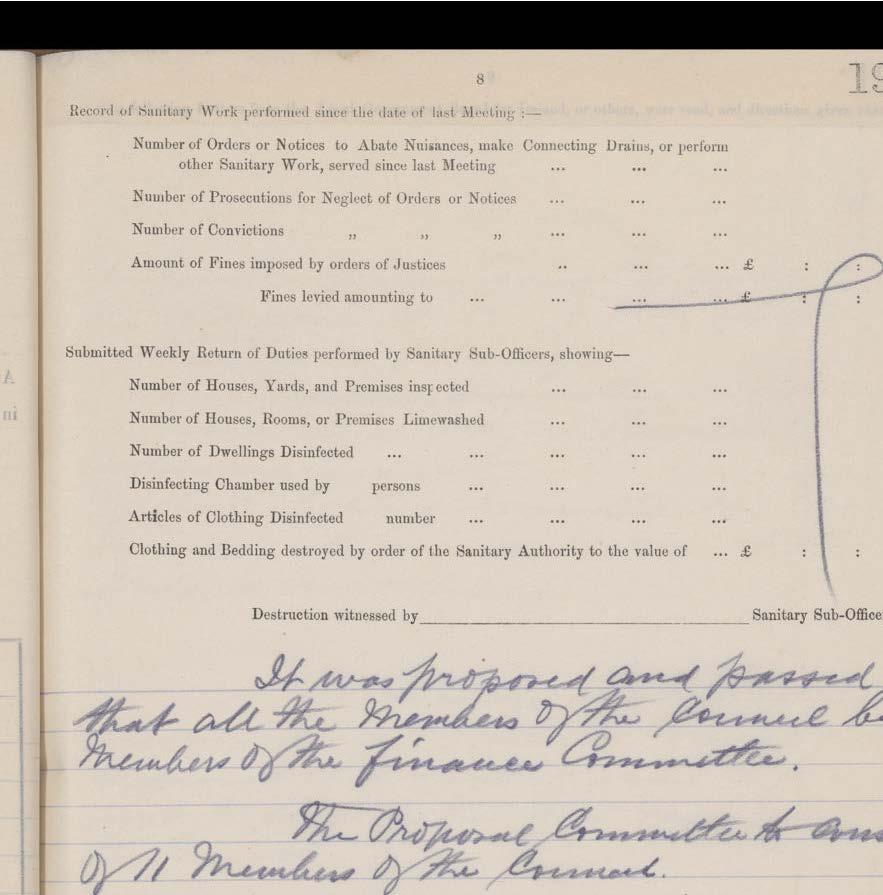 8
19
Record of Sanitary Work performed since the date of last Meeting :—
Number of Orders or Notices to Abate Nuisances, make Connecting Drains, or perform
other Sanitary Work, served since last Meeting ... ... ...
Number of Prosecutions for Neglect of Orders or Notices ... ... ...
Number of Convictions „ „ „ ... ... ...
Amount of Fines imposed by orders of Justices .. ... ... £ : :
Fines levied amounting to ... ... ... ... £ : :
Submitted Weekly Return of Duties performed by Sanitary Sub-Officers, showing—
Number of Houses, Yards, and Premises inspected ... ... ...
Number of Houses, Rooms, or Premises Limewashed ... ... ...
Number of Dwellings Disinfected ... ... ... ... ...
Disinfecting Chamber used by persons ... ... ... ...
Articles of Clothing Disinfected number ... ... ... ...
Clothing and Bedding destroyed by order of the Sanitary Authority to the value of ... £ : :
Destruction witnessed by Sanitary Sub-Office
It was proposed and passed
that all the Members of the Council be
Members of the Finance Committee.
The Proposal Committee to cons
of 11 Members of the Council.